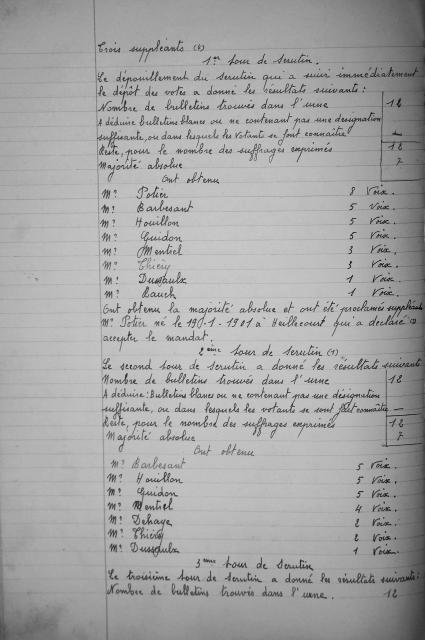 Trois suppléants (6)
1er tour de scrutin.
Le dépouillement du scrutin qui a suivi immédiatement
le dépôt des votes a donné les résultats suivants :
Nombre de bulletins trouvés dans l'urne 12
A déduire bulletins blancs ou ne contenant pas une désignation
suffisante, ou dans lesquels les votants se sont fait connaître —
Reste, pour le nombre des suffrages exprimés 12
Majorité absolue 7
Ont obtenu
Mr Potier 8 Voix.
Mr Barbesant 5 Voix.
Mr Houillon 5 Voix.
Mr Guidon 5 Voix.
Mr Mentiel 3 Voix.
Mr Thiéry 3 Voix.
Mr Dussaulx 1 Voix.
Mr Bauch 1 Voix.
Ont obtenu la majorité absolue et ont été proclamés suppléants
Mr Potier né le 1901 à Heillecourt qui a déclaré
accepter le mandat.
2ème tour de scrutin (1)
Le second tour de scrutin a donné les résultats suivants
Nombre de bulletins trouvés dans l'urne 12
A déduire : Bulletins blancs ou ne contenant pas une désignation
suffisante, ou dans lesquels les votants se sont fait connaître —
Reste, pour le nombre des suffrages exprimés 12
Majorité absolue 7
Ont obtenu
Mr Barbesant 5 Voix.
Mr Houillon 5 Voix.
Mr Guidon 5 Voix.
Mr Mentiel 4 Voix.
Mr Dehaye 2 Voix.
Mr Thiéry 2 Voix.
Mr Dussaulx 1 Voix.
3ème tour de scrutin
Le troisième tour de scrutin a donné les résultats suivants :
Nombre de bulletins trouvés dans l'urne. 12